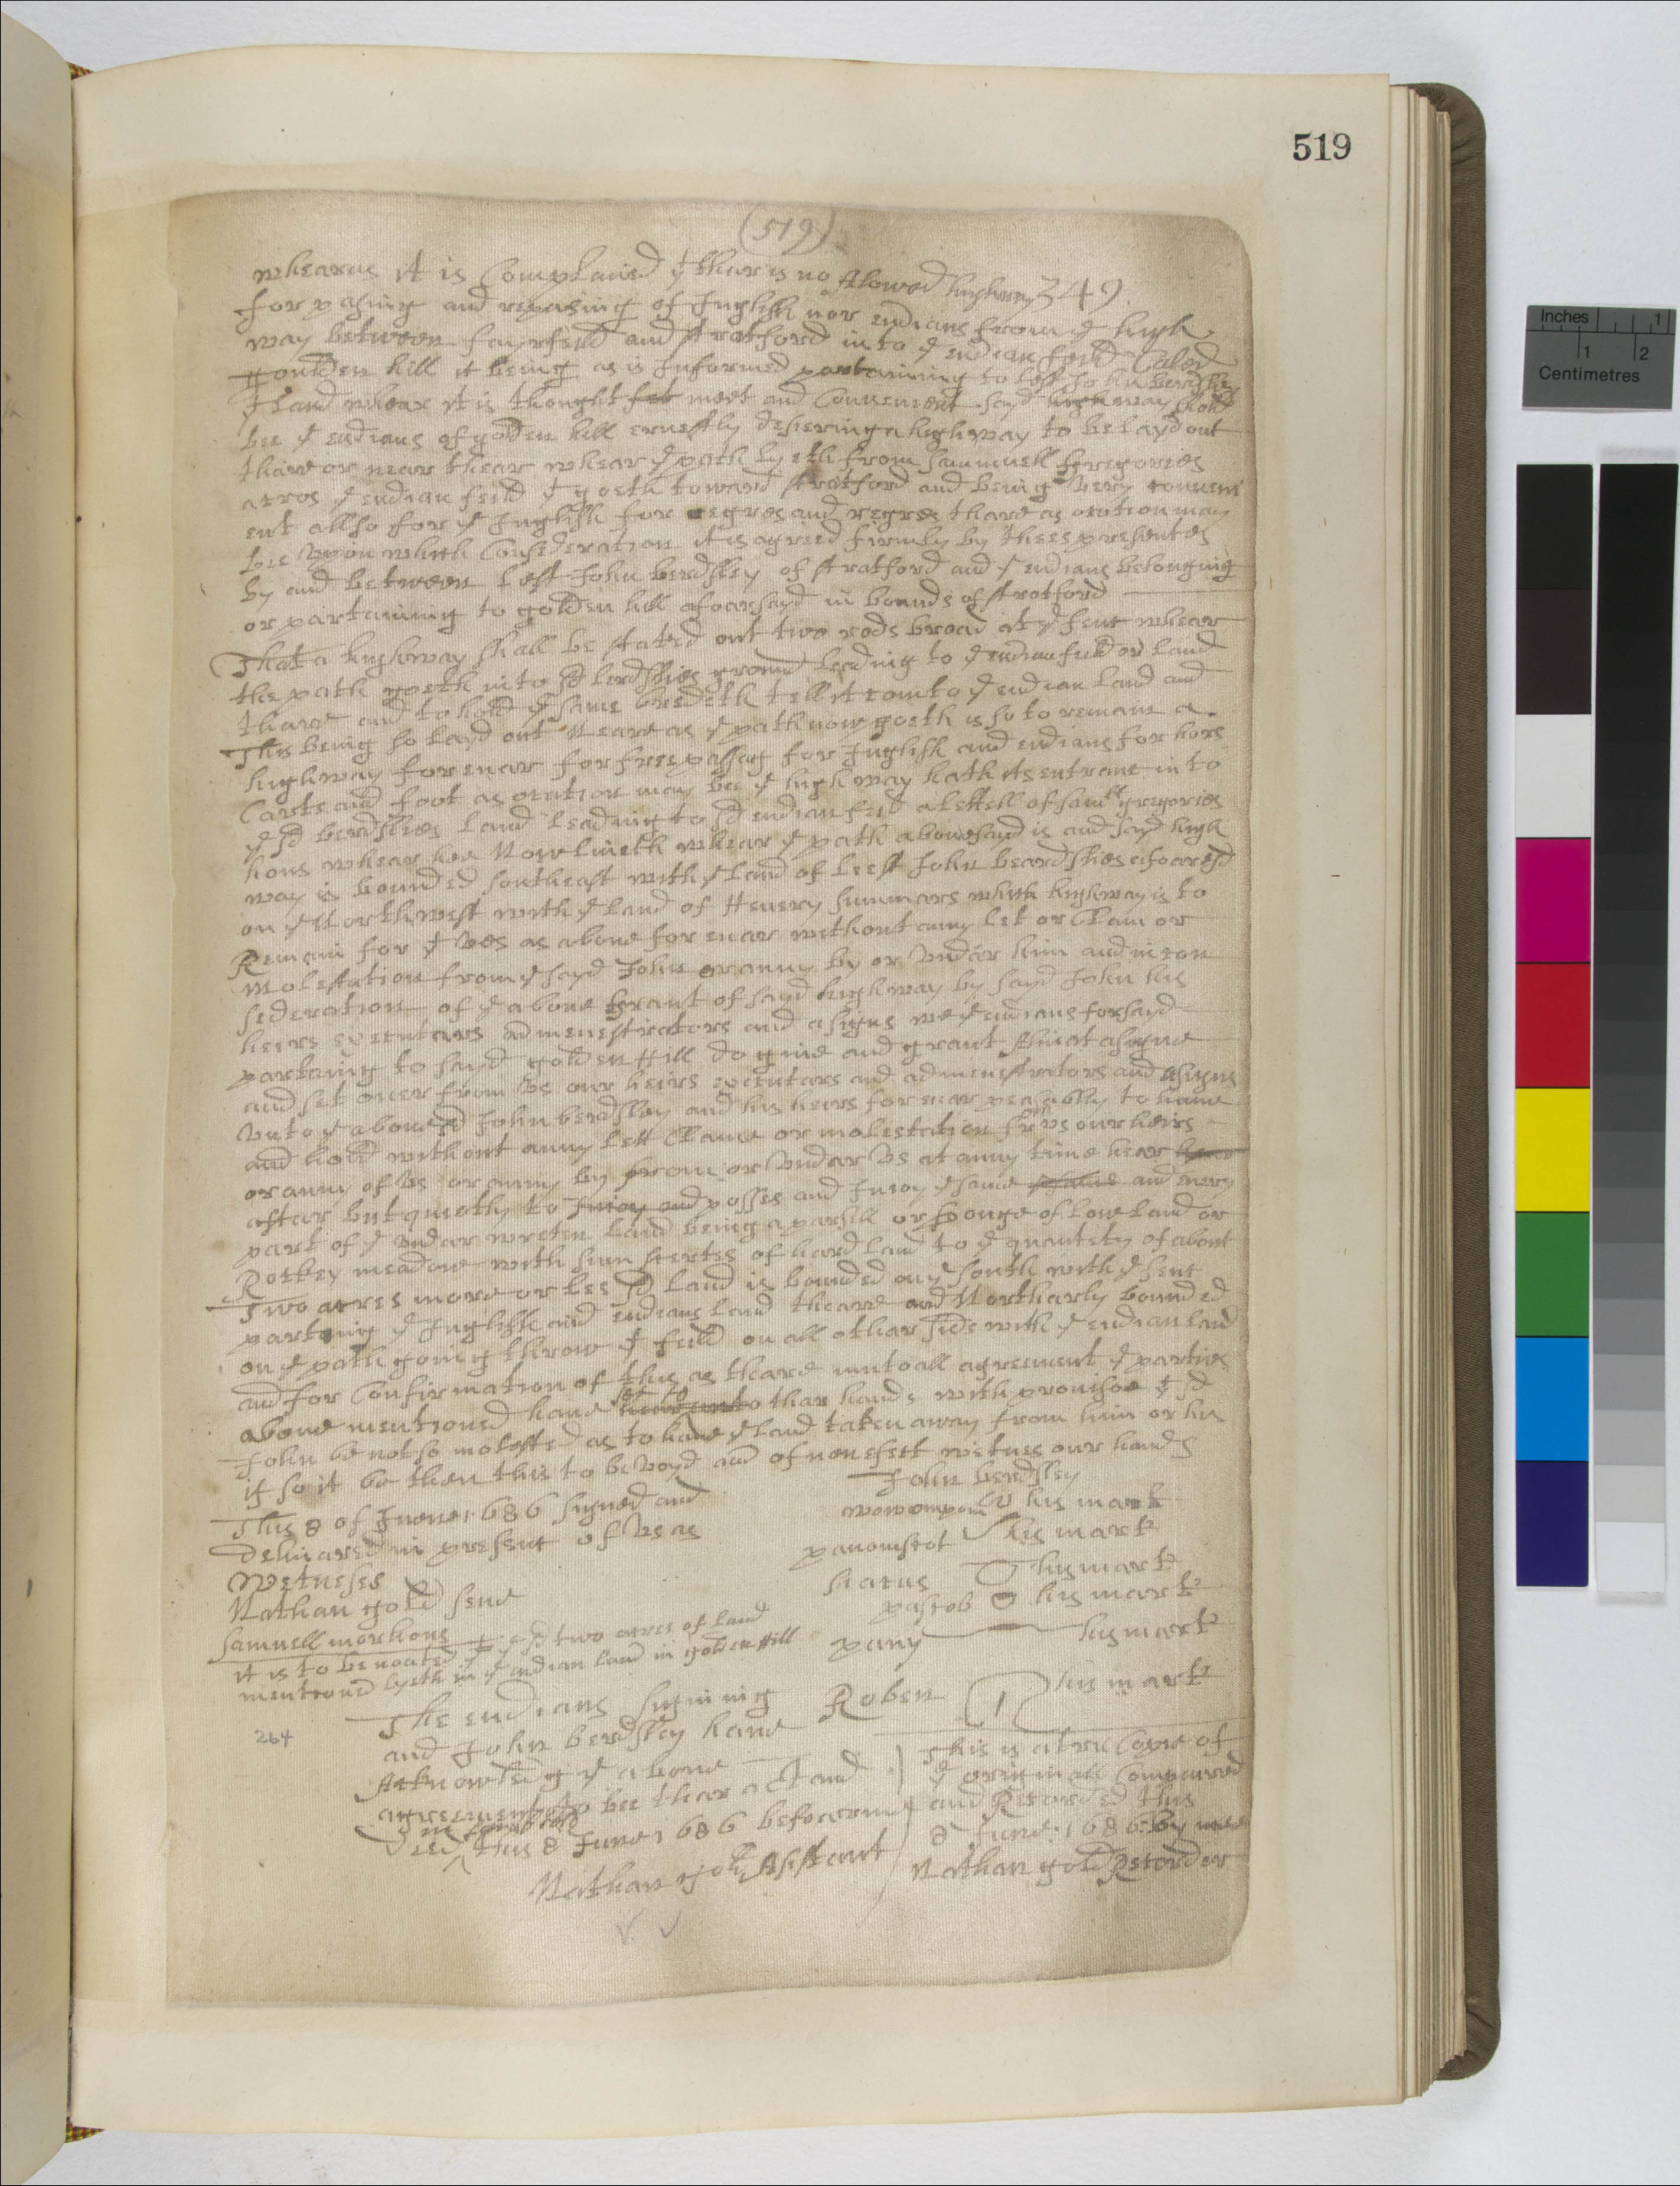 519
(519)
whearas it is Complained yt thear is no Alowed highway 349
for pasing and repasing of Inglish nor endians from ye high
way between fayrfeild and stratford into ye endian feild Caled
goulden hill it being as is Informed partaining to Left John berdslies
yt land whear it is thought fit meet and Convenient sayd highway shold
bee ye endians of golden hill ernestly desiering a highway to be layd out
thare or near thear whear ye path lyeth from Sammuell gregories
acros ye endian feild yt goeth toward stratford and being very conveni
ent allso for ye Inglish for egres and regres thare as ocation may
bee Vpon which Consederation it is agreed firmly by thees presentes
by and between Left John berdsley of stratford and ye endians belonging
or partaining to golden hill afoarsayd in bounds of stratford
That a highway shall be stated out two rods broad at ye fenc whear
the path goeth into sd berdslies ground leading to ye endian feild or land
thare and to hold ye same bredeth tell it com to ye endian land and
This being so layd out neare as ye path now goeth is so to remaine a
highway for evar for free passag for Inglish and endians for hors
Carts and foot as ocation may bee ye highway hath its entranc in to
ye sd berdslies land leading to sd endian feild a lettell of Samll gregories
hous whear hee Now liveth whear ye path abovesayd is and sayd high
way is bounded southeast with ye land of Left John beardslies afoaresd
on ye Northwest with ye land of Henery summars which highway is to
Remain for ye Ves as above for evar without anny let or Claim or
molestation from ye sayd John or anny by or Vndar him and in con
sideration of ye above grant of sayd highway by sayd John his
heirs executars admenestrators and asigns we ye endians forsayd
partaing to sayd golden Hill do give and grant Alinat asigne
and set over from Vs our heirs executars and admenestrators and asigns
Vnto ye abovesd John berdsley and his heirs for evar peasably to have
and hold without anny lett Claime or molestation frm vs our heirs
or anny of Vs or anny by from or Vndar Vs at anny time hear hear
aftar but quietly to Injoy and posses and Injoy ye same and every
part of ye vndar wreten land being a parsill or sponge of low land or
Rockey meadow with sum skertes of hard land to ye quantety of about
Two acres more or les sd land is bounded on ye South with ye fenc
parting ye Inglish and endians land theare and Northarly bounded
on ye path going throw ye feild on all othar Side with ye endian land
and for Confirmation of this as theare mutoall agreement ye parties
above mentioned have set to thar hands with provisoe yt sd
John be not so molested as to have ye land taken away from him or his
if so it be then this to be voyd and of non efect witnes our hands
This 8 of Juene 1686 signed and
Delivared in present of Vs as
Wetneses
Nathan gold sene
Samuell morhous
it is to be noated yt ye sd two acres of land
mentioned lyeth in ye endian land in golden Hill
John berdsley
wowompom his mark
panomscot his mark
Siacus his mark
pascob his mark
pany his mark
Roben his mark
264
The endians signing
and John berdsley have
Acknowledg ye above
agreement to bee thear act and
Deed this 8 June 1686 befoar me
Nathan gold Asistant
This is a tru Copie of
ye originall Compaired
and Recorded this
8 June: 1686: by mee
Nathan gold Recorder
Inches 1
1 2
Centimetres